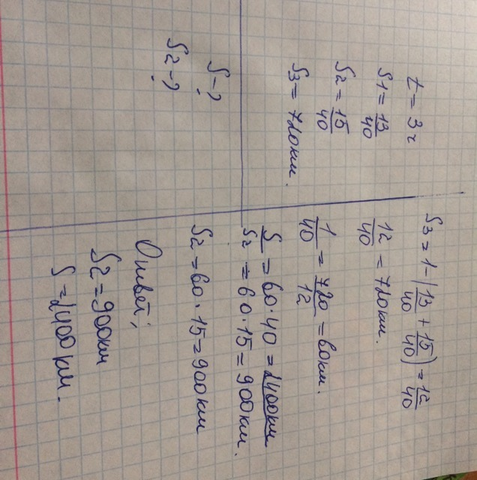 t = 3 ч
S1 = 13/40
S2 = 15/40
S3 = 720 км.
S-?
S2-?
S3 = 1 - (13/40 + 15/40) = 12/40
12/40 = 720 км.
1/40 = 720/12 = 60 км.
S = 60 · 40 = 2400 км
S2 = 60 · 15 = 900 км.
S2 = 60 · 15 = 900 км
Ответ;
S2 = 900 км
S = 2400 км.